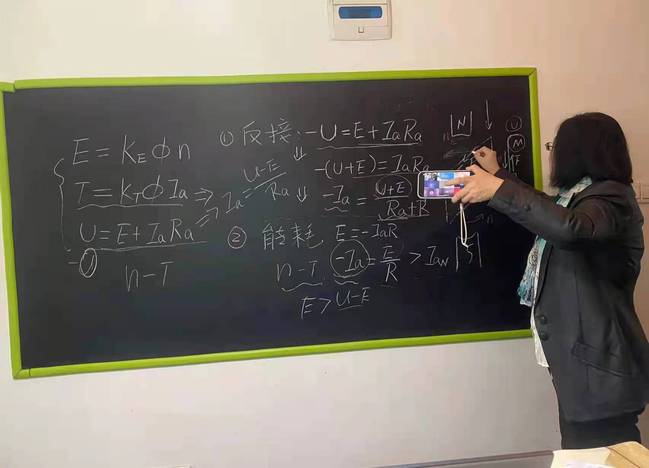 E = KEΦn
T = KTΦIa ⇒
U = E + IaRa ⇒
n-T
Ia = U-E / Ra
① 反接: -U = E + IaRa
-(U+E) = IaRa
-Ia = U+E / Ra+R
② 能耗 E = -IaR
n-T -Ia = E / R > IaN
E > U-E
N
S